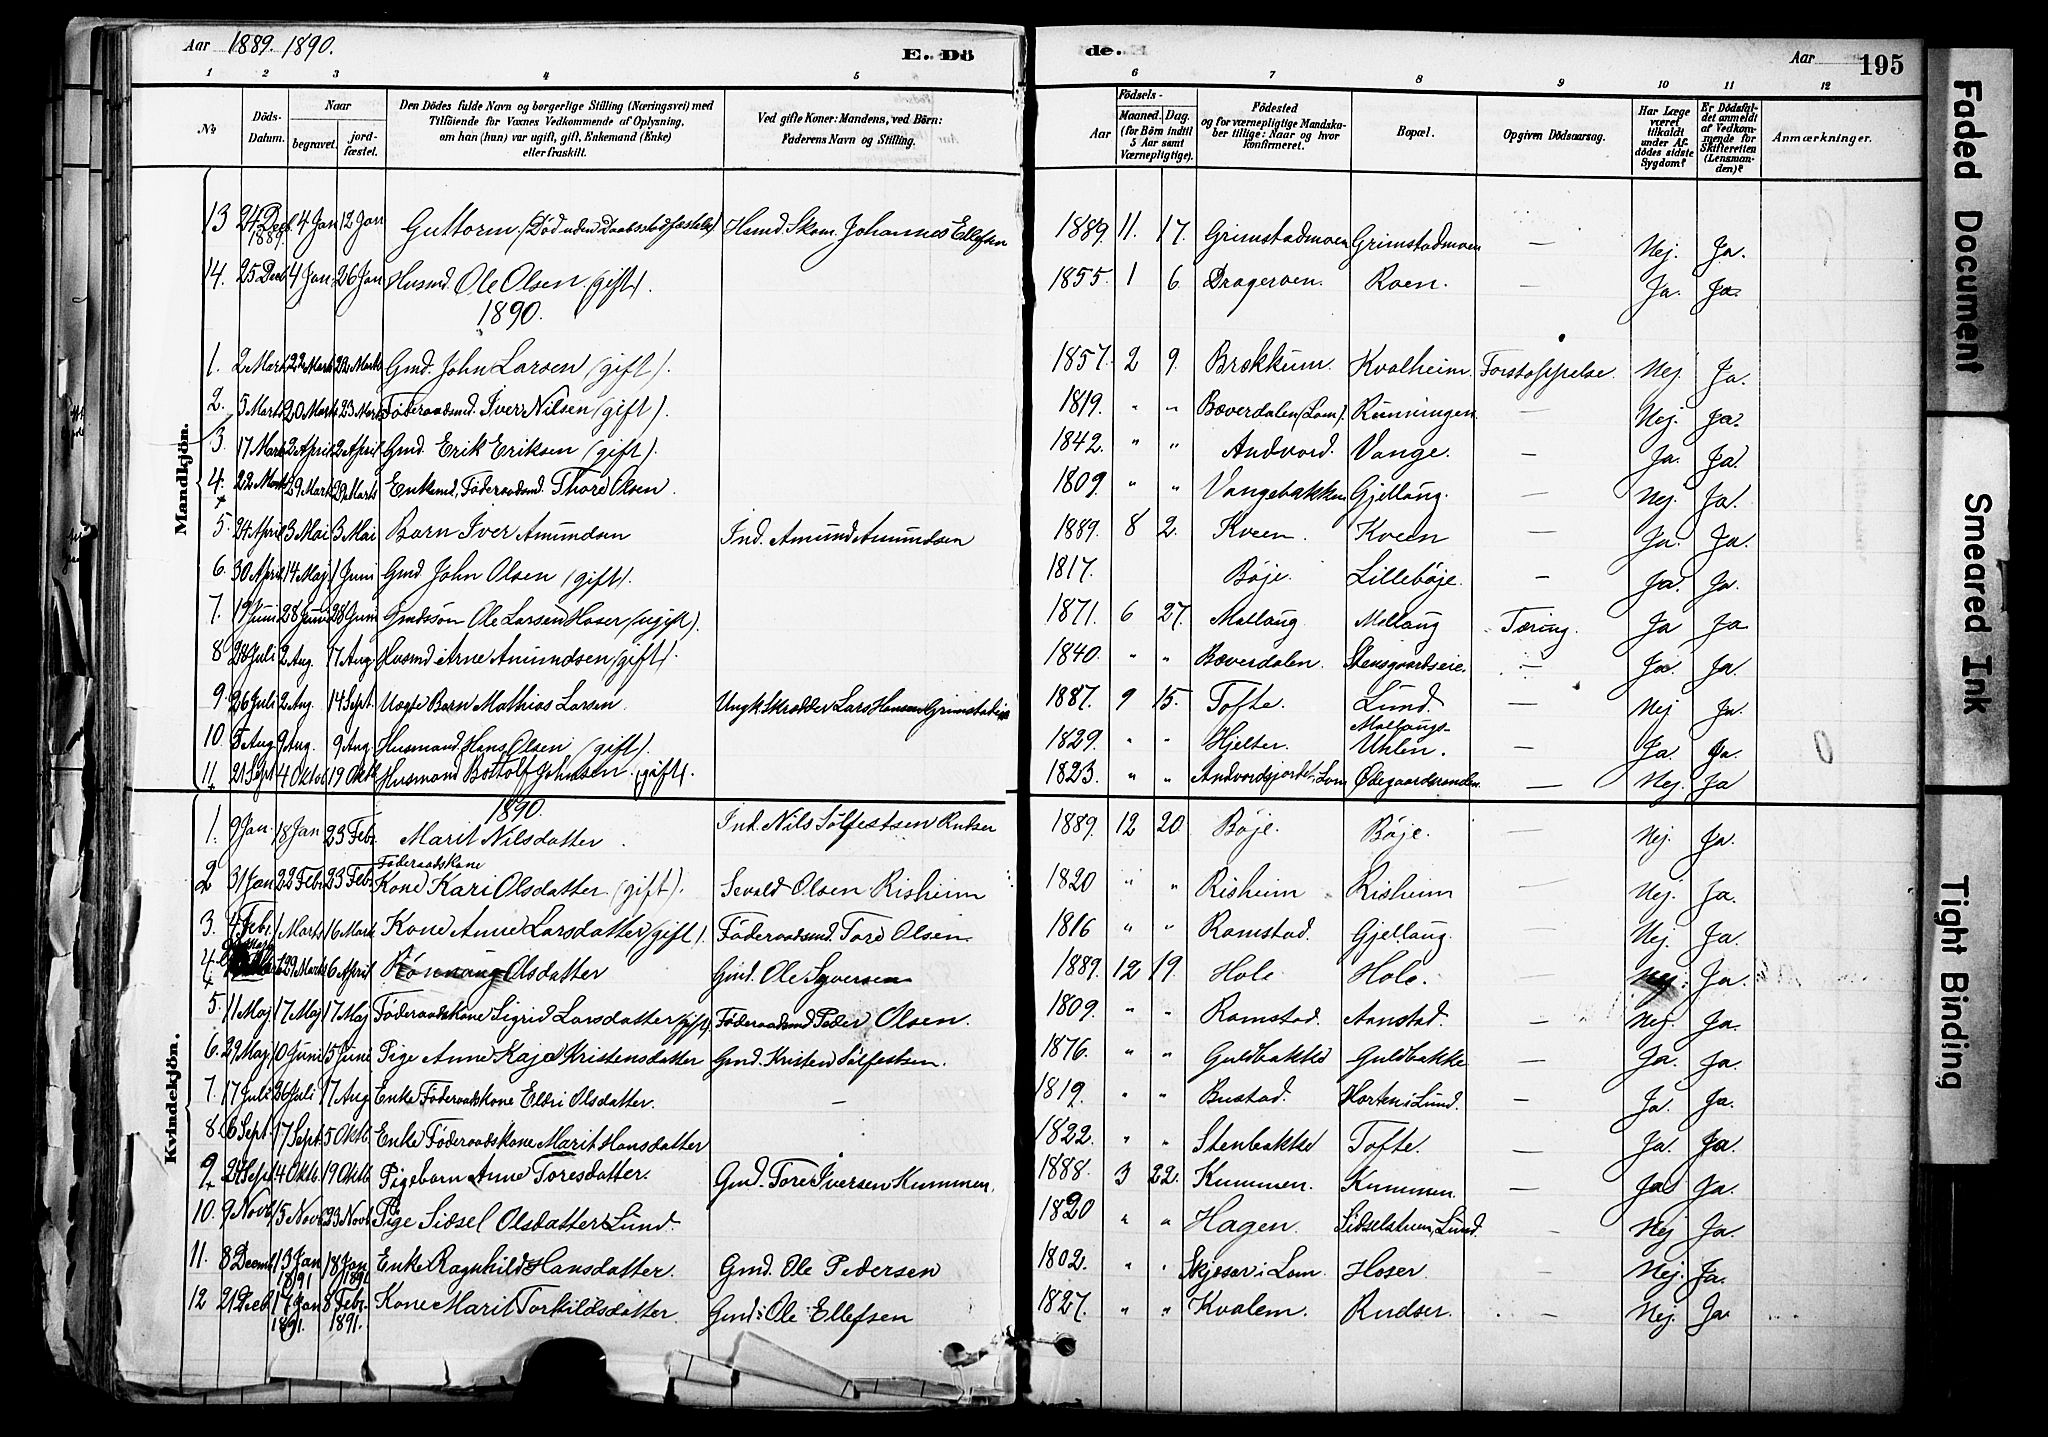 Aar 1889. 1890.
E. Dö
de.
Aar
195
1 2 3 4 5 6 7 8 9 10 11 12
No
Döds-Datum.
Naar
begravet.
jord-fæstet.
Den Dödes fulde Navn og borgerlige Stilling (Næringsvei) med
Tilföiende for Voxnes Vedkommende af Oplysning,
om han (hun) var ugift, gift, Enkemand (Enke)
eller fraskilt.
Ved gifte Koner: Mandens, ved Börn:
Faderens Navn og Stilling.
Födsels-
Aar
Maaned. Dag.
(for Börn indtil
5 Aar samt
Værnepligtige).
Födested
og for værnepligtige Mandska-
ber tillige: Naar og hvor
konfirmeret.
Bopæl.
Opgiven Dödsaarsag.
Har Læge
været
tilkaldt
under Af-
dödes sidste
Sygdom?
Er Dödsfal-
det anmeldt
af Vedkom-
mende for
Skifteretten
(Lensman-
den)?
Anmærkninger.
Mandkjön.
13 24 Dec 1889. 4 Jan 12 Jan Guttorm (Død uden Daabsstadfæstelse) Husmd. Skom. Johannes Ellefsen 1889. 11. 17. Grimstadmoen Grimstadmoen — Nej. Ja.
14. 25 Dec 4 Jan 26 Jan Husmd. Ole Olsen (gift). 1855. 1 6 Drageroen. Roen. — Ja. Ja.
1890.
1. 2 Mart 22 Marts 22 Marts Gmd. John Larsen (gift). 1857. 2 9. Brækkum. Kvalheim. Forstoppelse. Nej. Ja.
2. 5 Marts 20 Marts 23 Marts Føderaadsmd. Iver Nilsen (gift). 1819. " " Bæverdalen (Lom). Runningen — Nej. Ja.
3. 17 Marts 2 April 2 April Gmd. Erik Eriksen (gift). 1842. " " Andvord. Vange. — Ja. Ja.
4. 22 Marts 29 Marts 29 Marts Enkemd, Føderaadsmd. Thore Olsen. 1809. " " Vangebakken Gjellaug. — Nej. Ja.
5 24 April 3 Mai 3 Mai Barn Iver Amundsen Ind. Amund Amundsen 1889. 8 2. Kveen. Kveen — Ja. Ja.
6. 30 April 14 Maj 1 Juni Gmd. John Olsen (gift). 1817. Bøje. Lillebøje. — Ja. Ja.
7. 19 Juni 28 Juni 28 Juni Gmdssøn Ole Larsen Hoser (ugift). 1871. 6 27. Mellaug Mellaug Tæring. Ja Ja
8 28 Juli 2 Aug. 17 Aug. Husmd Arne Amundsen (gift). 1840. " " Bæverdalen. Stensgaardseie. — Ja. Ja.
9. 26 Juli 2 Aug. 14 Sept. Uægte Barn Mathias Larsen. Ungk. Skrædder Lars Hansen Grimstadeie 1887. 9 15. Tofte. Lund. — Nej Ja.
10. 5 Aug. 9 Aug. 9 Aug. Husmand Hans Olsen (gift). 1829. " " Hjelter. Mellaugs-Uhlen. — Ja. Ja.
11 21 Sept 4 Oktb 19 Oktb Husmand Bottolf Johnsen. (gift). 1823. " " Andvordsjordet, Lom Ødegaardsranden. — Nej. Ja
Kvindekjön.
1890.
1. 9 Jan. 18 Jan 23 Febr. Marit Nilsdatter. Ind. Nils Sølfestsen Rudser 1889. 12 20. Bøje. Bøje. — Nej. Ja.
2 31 Jan 22 Febr 23 Febr. Føderaadskone Kone Kari Olsdatter (gift). Sevald Olsen Risheim 1820 " " Risheim Risheim — Nej. Ja.
3. 4 Febr. 1 Marts 16 Marts Kone Anne Larsdatter (gift). Føderaadsmd. Tore Olsen. 1816 " " Ramstad. Gjellaug. — Nej. Ja.
4. 29 Marts 6 April Rønnaug Olsdatter Gmd. Ole Syversen 1889. 12 19. Hole Hole. Nej. Ja.
5. 11 Maj. 17 Maj 17 Maj Føderaadskone Sigrid Larsdatter (gift). Føderaadsmd Peder Olsen. 1809. " " Ramstad. Aanstad. — Nej. Ja.
6. 29 Maj. 10 Juni 15 Juni Pige Anne Kaja Kristensdatter Gmd. Kristen Sølfestsen. 1876. " " Guldbakke Guldbakke — Ja. Ja.
7. 17 Juli 26 Juli 17 Aug Enke Føderaadskone Eldri Olsdatter. — 1819. " " Bustad. Horten i Lund. — Ja. Ja.
8. 6 Sept. 17 Sept. 5 Oktb. Enke Føderaadskone Marit Hansdatter 1822. " " Stenbakke Tofte. — Ja. Ja.
9. 24 Sept 4 Oktb. 19 Oktb. Pigebarn Anne Toresdatter. Gmd. Tore Iversen Kummen. 1888. 3 22. Kummen. Kummen. — Ja. Ja.
10. 9 Novb. 15 Novb 23 Novb Pige Sidsel Olsdatter Lund. 1820 " " Hagen. Sidselstuen, Lund. — Nej Ja.
11. 8 Decmb 13 Jan 1891 18 Jan 1891 Enke Ragnhild Hansdatter. Gmd. Ole Pedersen 1802. " " Skjæser i Lom. Hoser. — Nej. Ja.
12 21 Decb 17 Jan 1891. 8 Febr. 1891. Kone Marit Torkildsdatter. Gmd: Ole Ellefsen 1827. " " Kvalem. Rudser. — Nej. Ja.
Faded Document
Smeared Ink
Tight Binding